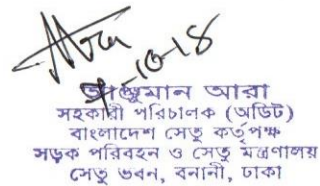 -10-18
আঞ্জুমান আরা
সহকারী পরিচালক (অডিট)
বাংলাদেশ সেতু কর্তৃপক্ষ
সড়ক পরিবহন ও সেতু মন্ত্রণালয়
সেতু ভবন, বনানী, ঢাকা